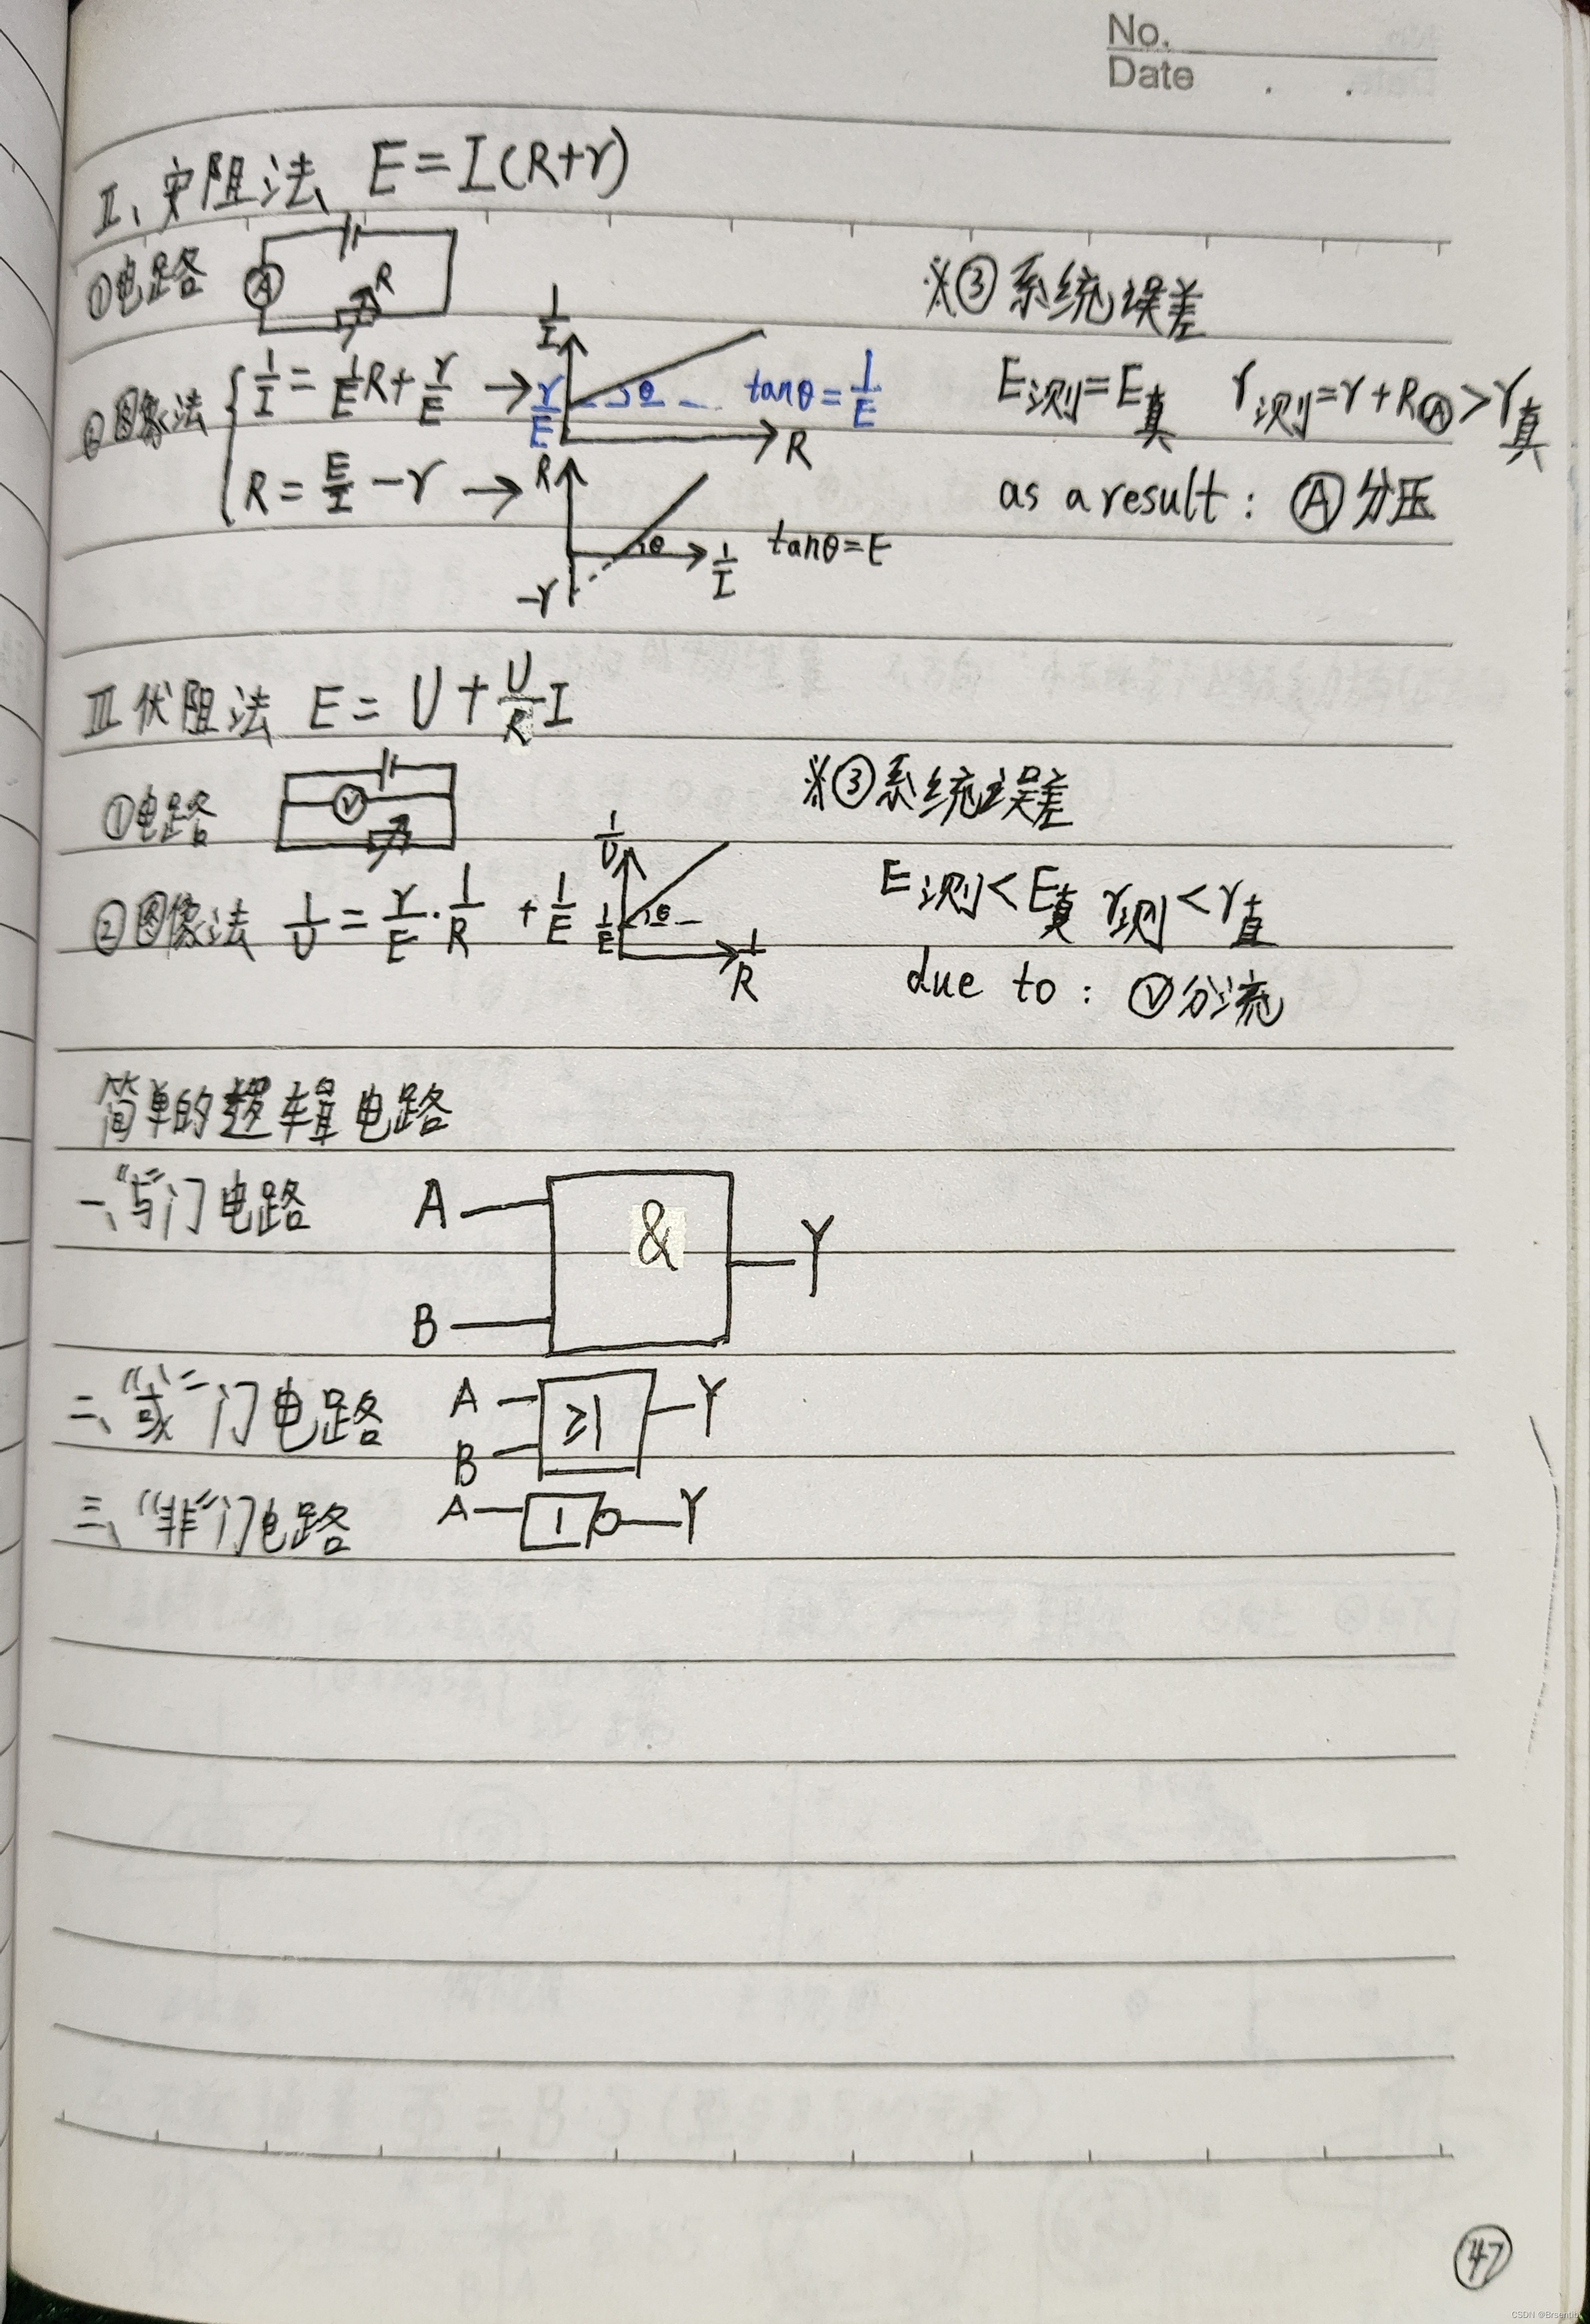 No.
Date . .
II、安阻法 E=I(R+r)
①电路 A R
②图象法 { 1/I = 1/E R + r/E → 1/I r/E θ R tanθ = 1/E
R = E/I - r → R θ 1/I -r tanθ=E
※③系统误差
E测=E真 r测=r+RⒶ>r真
as a result: Ⓐ分压
III伏阻法 E= U + U/R I
①电路 V
②图像法 1/U = r/E · 1/R + 1/E 1/U 1/E θ 1/R
※③系统误差
E测<E真 r测<r真
due to: Ⓥ分流
简单的逻辑电路
一、"与"门电路 A B & Y
二、"或"门电路 A B ≥1 Y
三、"非"门电路 A 1 Y
47
CSDN @Brsentibi